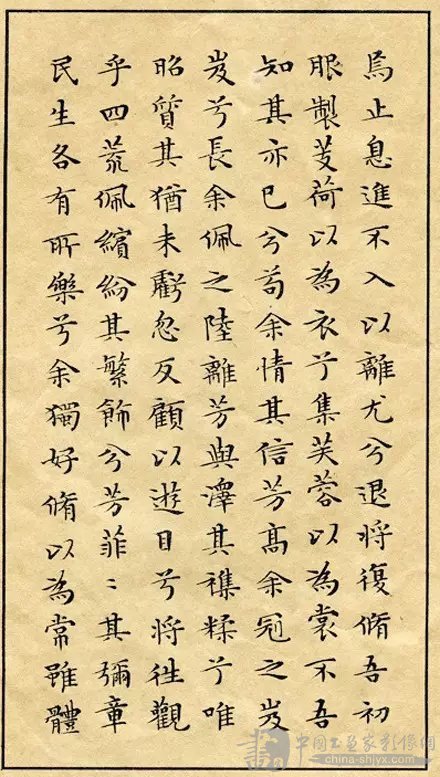 焉止息進不入以離尤兮退將復脩吾初
服製芰荷以為衣兮集芙蓉以為裳不吾
知其亦已兮苟余情其信芳高余冠之岌
岌兮長余佩之陸離芳與澤其襍糅兮唯
昭質其猶未虧忽反顧以遊目兮將往觀
乎四荒佩繽紛其繁飾兮芳菲〻其彌章
民生各有所樂兮余獨好脩以為常雖體
中国书画家影像网
china-shjyx.com